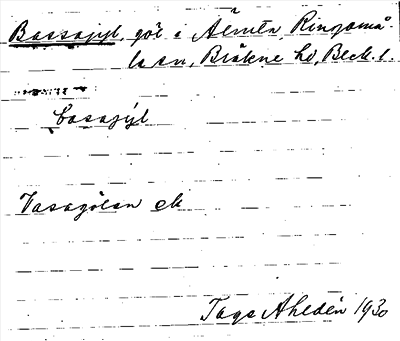 Bassagyl, göl i Älmta Ringamå-
la sn, Bräkne hd, Blek. l.
basagyl
Vasagölen ek
Tage Ahldén 1930